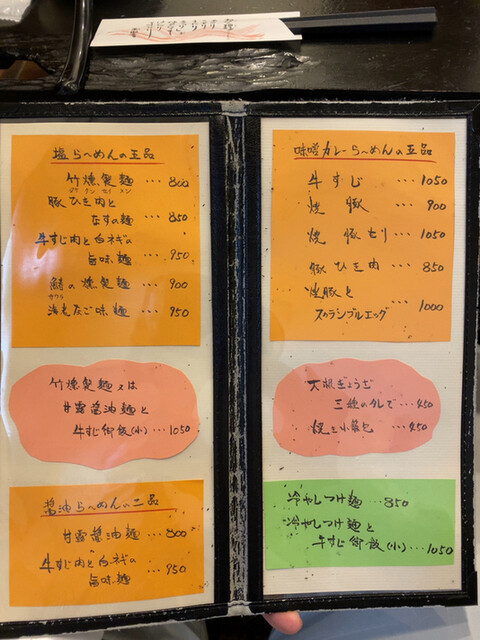 塩らーめんの五品
竹燻製麺 ・・・ 800
豚ひき肉と
なすの麺 ・・・ 850
牛すじ肉と白ネギの
旨味麺 ・・・ 950
鰆の燻製麺 ・・・ 900
サワラ
海老なご味麺 ・・・ 950
竹燻製麺又は
甘露醤油麺と
牛すじ御飯(小) ・・・ 1050
醤油らーめんの二品
甘露醤油麺 ・・・ 800
牛すじ肉と白ネギの
旨味麺 ・・・ 950
味噌カレーらーめんの五品
牛すじ ・・・ 1050
焼豚 ・・・ 900
焼豚セリ ・・・ 1050
豚ひき肉 ・・・ 850
焼豚と
スクランブルエッグ ・・・ 1000
大根ぎょうざ
三種のタレで ・・・ 450
焼き小籠包 ・・・ 450
冷やしつけ麺 ・・・ 850
冷やしつけ麺と
牛すじ御飯(小) ・・・ 1050